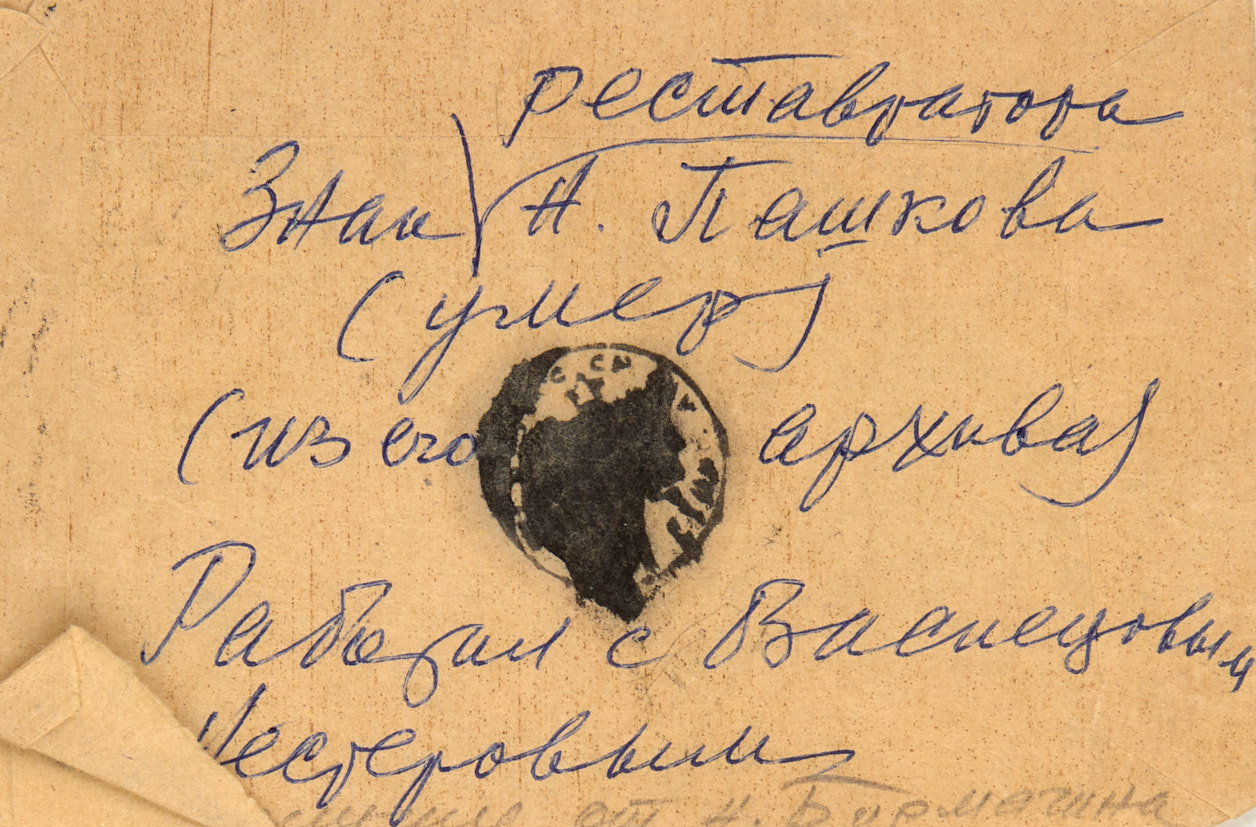 реставратора
Знак Н. Пашкова
(умер)
(из его архива)
Работал с Васнецовым
Нестеровым
от Н.